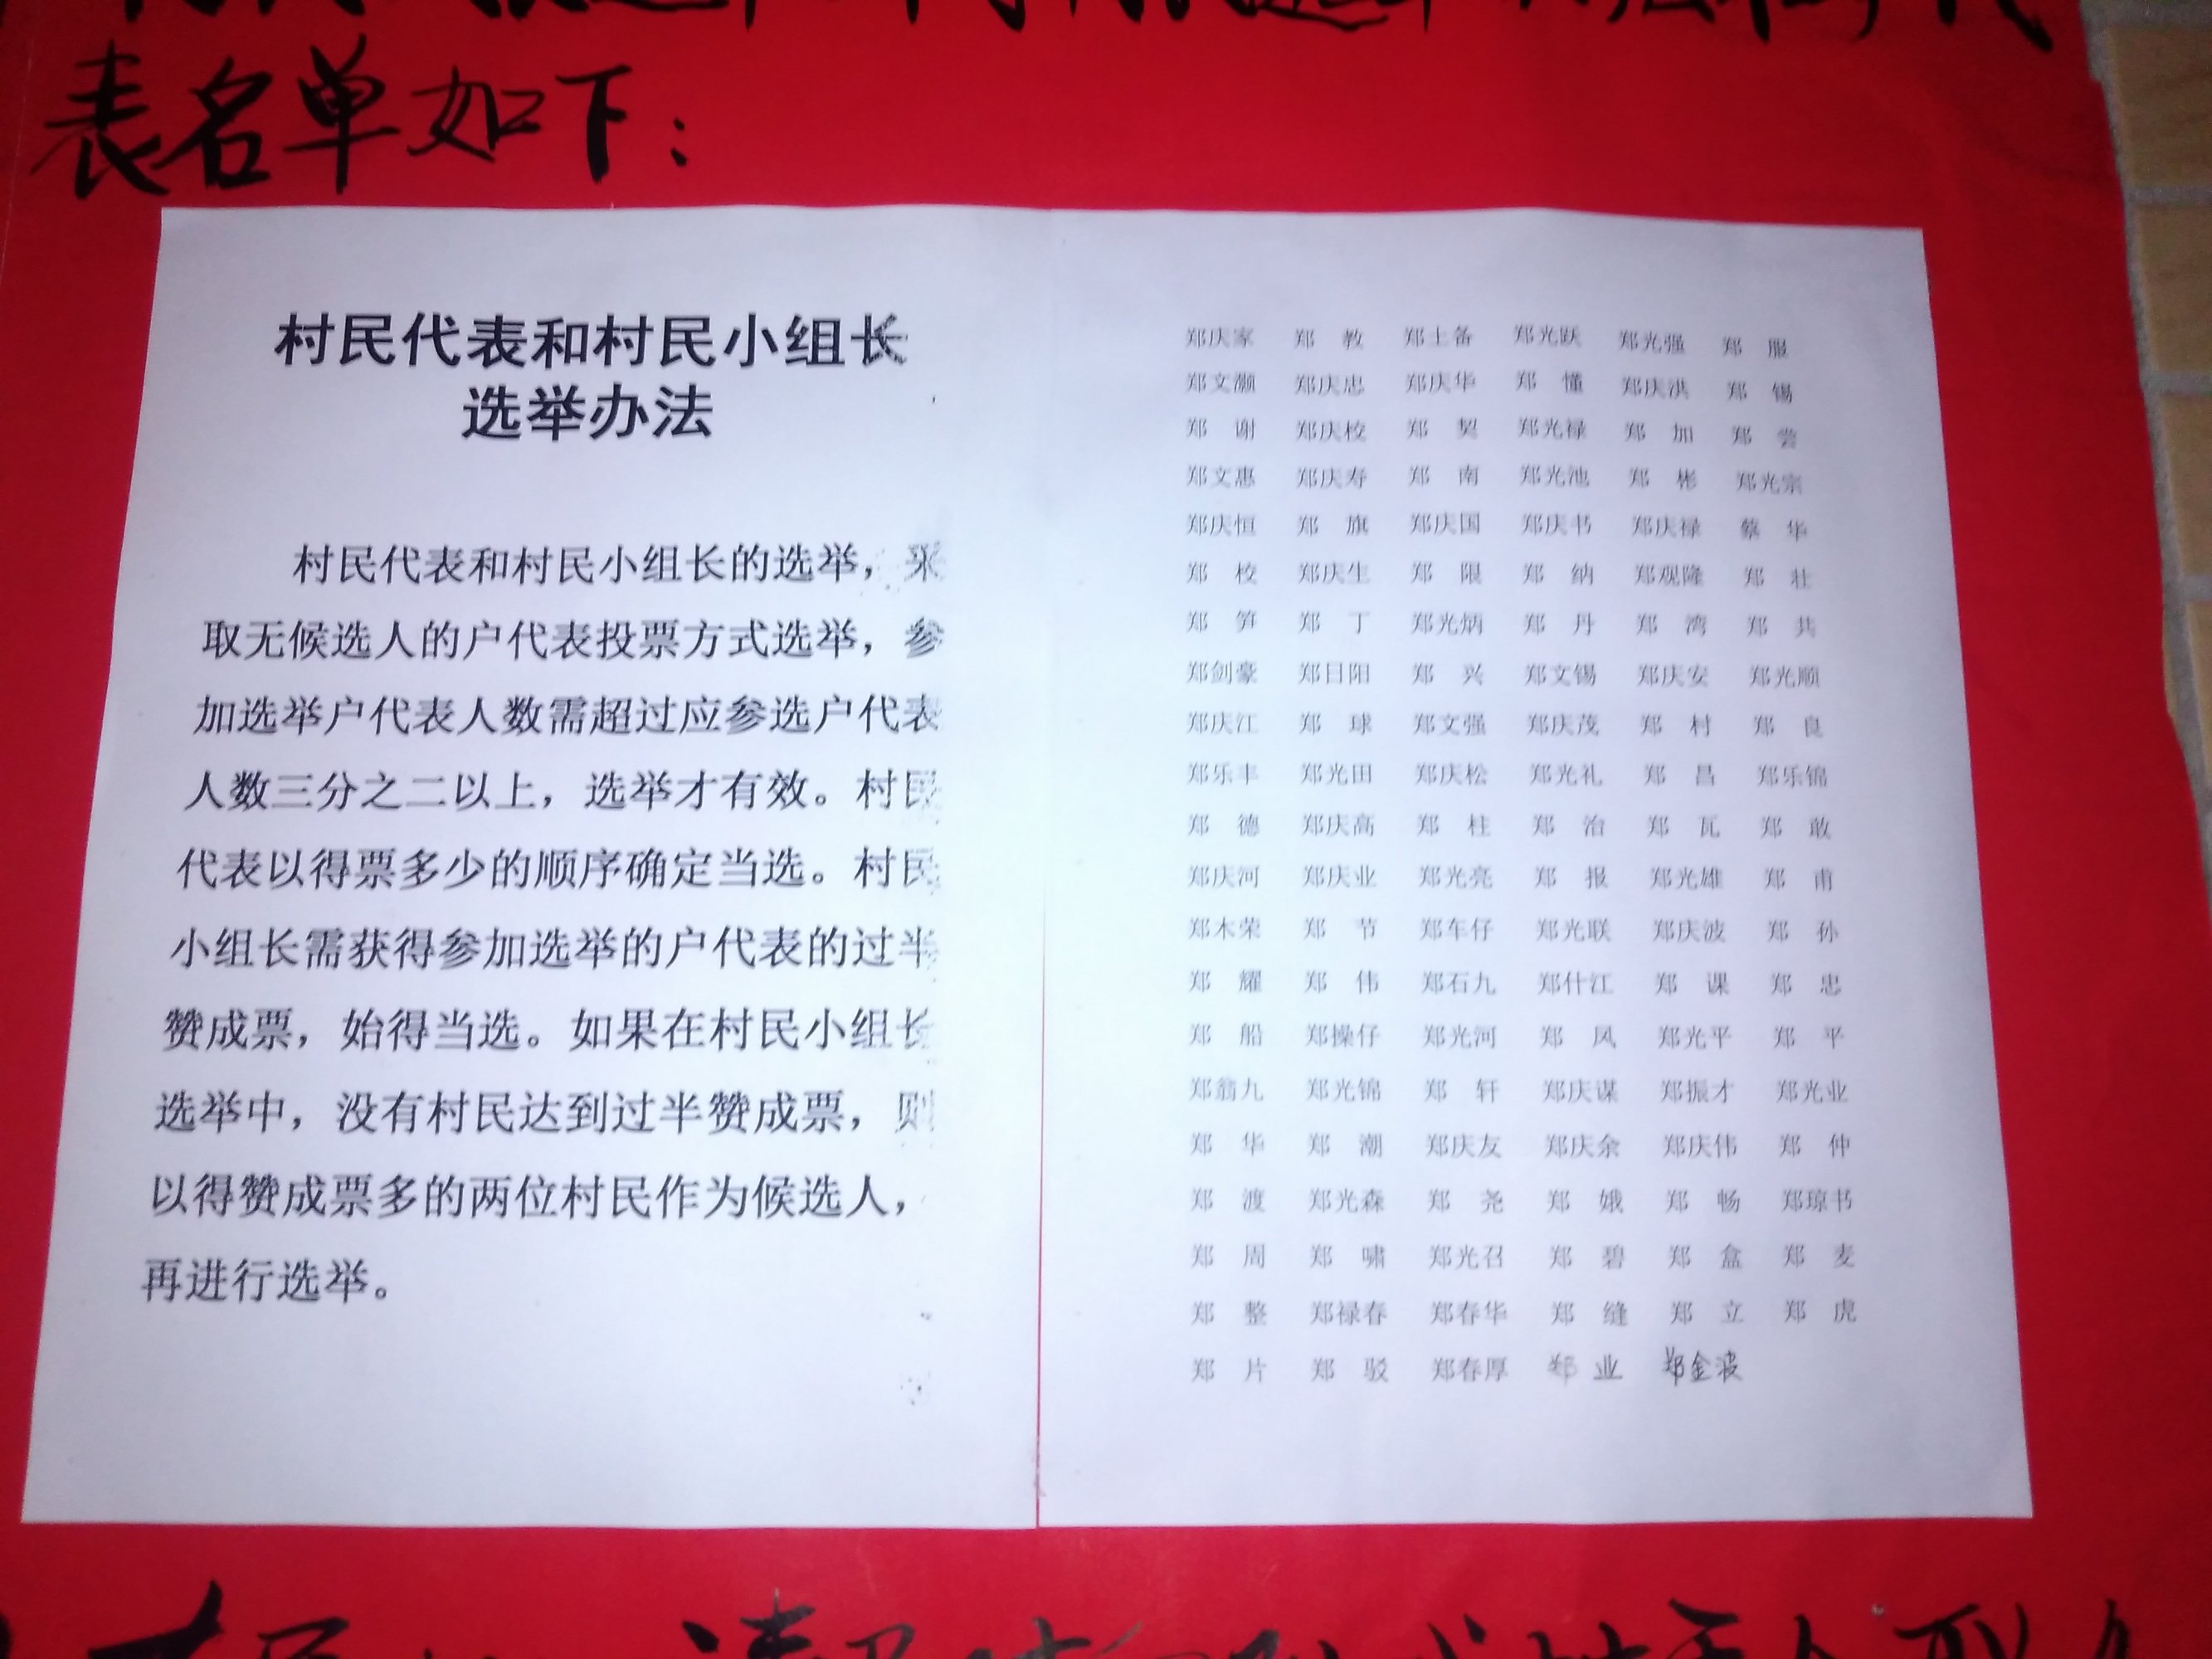 表名单如下：
村民代表和村民小组长
选举办法
村民代表和村民小组长的选举，采
取无候选人的户代表投票方式选举，参
加选举户代表人数需超过应参选户代表
人数三分之二以上，选举才有效。村民
代表以得票多少的顺序确定当选。村民
小组长需获得参加选举的户代表的过半
赞成票，始得当选。如果在村民小组长
选举中，没有村民达到过半赞成票，则
以得赞成票多的两位村民作为候选人，
再进行选举。
郑庆家 郑 教 郑土备 郑光跃 郑光强 郑 服
郑文灏 郑庆忠 郑庆华 郑 懂 郑庆洪 郑 锡
郑 谢 郑庆校 郑 契 郑光禄 郑 加 郑 尝
郑文惠 郑庆寿 郑 南 郑光池 郑 彬 郑光宗
郑庆恒 郑 旗 郑庆国 郑庆书 郑庆禄 蔡 华
郑 校 郑庆生 郑 限 郑 纳 郑观隆 郑 壮
郑 笋 郑 丁 郑光炳 郑 丹 郑 湾 郑 共
郑剑豪 郑日阳 郑 兴 郑文锡 郑庆安 郑光顺
郑庆江 郑 球 郑文强 郑庆茂 郑 村 郑 良
郑乐丰 郑光田 郑庆松 郑光礼 郑 昌 郑乐锦
郑 德 郑庆高 郑 柱 郑 治 郑 瓦 郑 敢
郑庆河 郑庆业 郑光亮 郑 报 郑光雄 郑 甫
郑木荣 郑 节 郑车仔 郑光联 郑庆波 郑 孙
郑 耀 郑 伟 郑石九 郑什江 郑 课 郑 忠
郑 船 郑操仔 郑光河 郑 凤 郑光平 郑 平
郑翁九 郑光锦 郑 轩 郑庆谋 郑振才 郑光业
郑 华 郑 潮 郑庆友 郑庆余 郑庆伟 郑 仲
郑 渡 郑光森 郑 尧 郑 娥 郑 畅 郑琼书
郑 周 郑 啸 郑光召 郑 碧 郑 盒 郑 麦
郑 整 郑禄春 郑春华 郑 缝 郑 立 郑 虎
郑 片 郑 驳 郑春厚 郑 业 郑金波